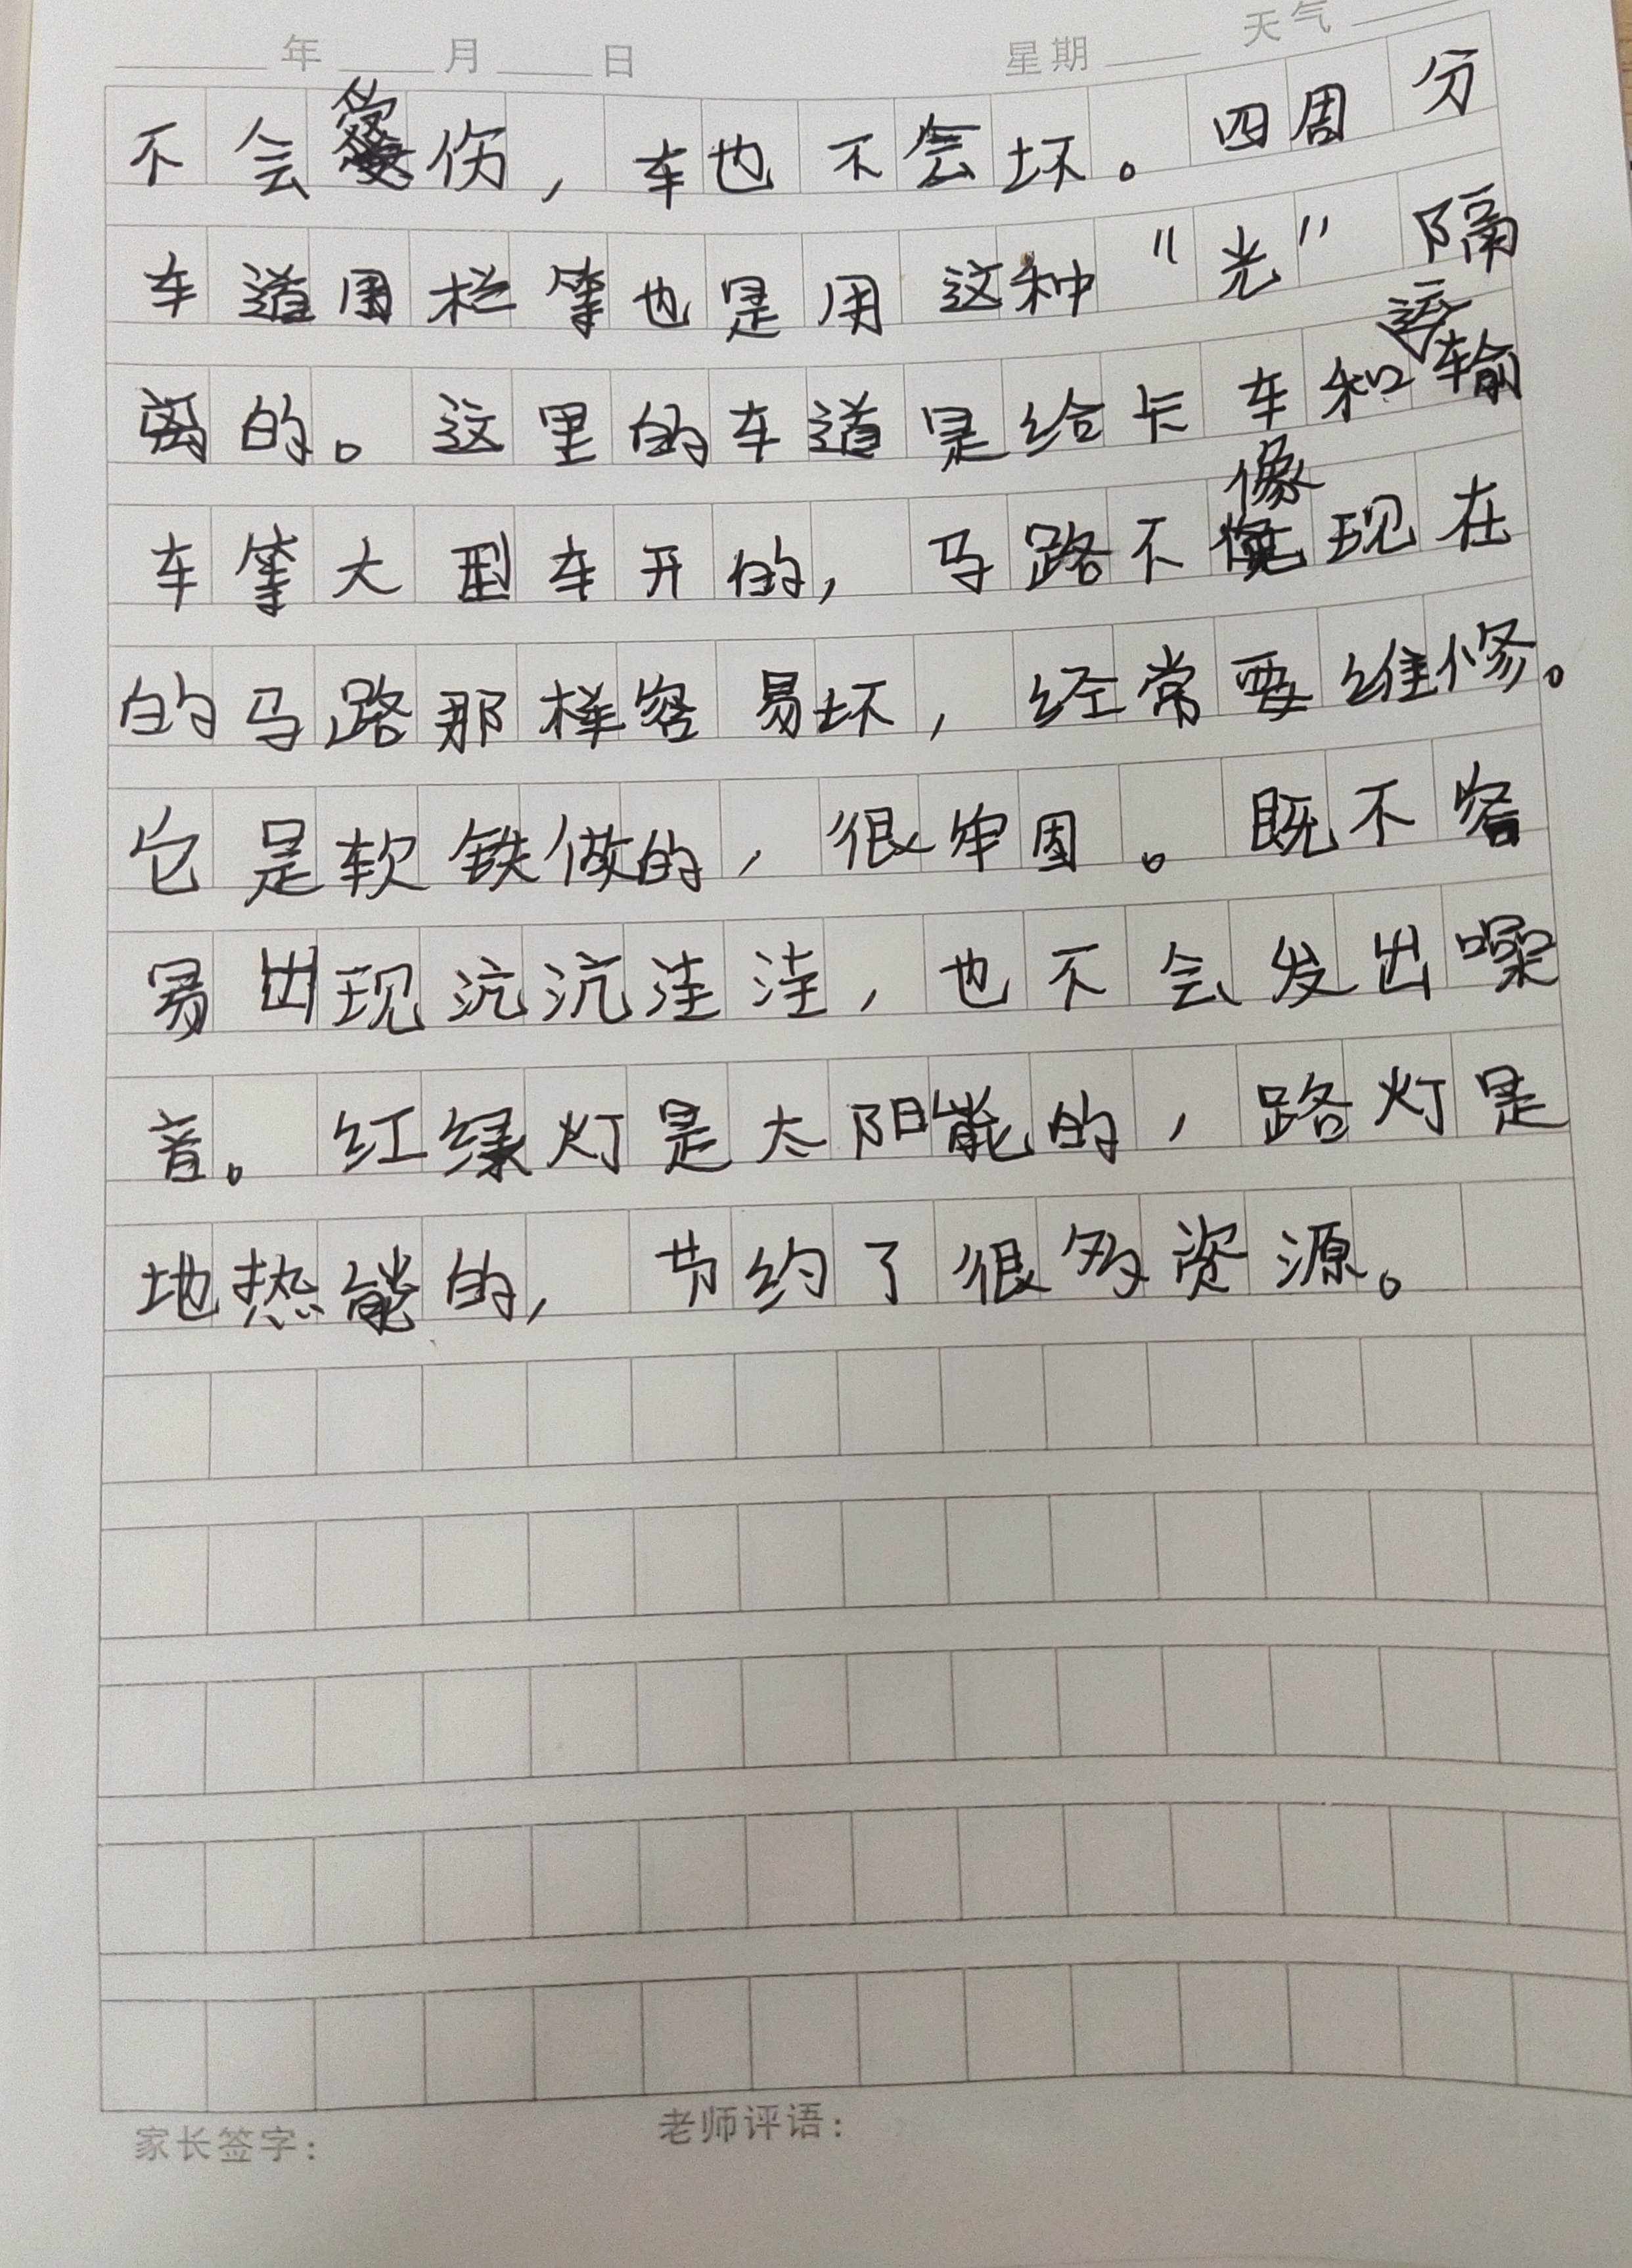 ____年____月____日 星期____ 天气____
不会受伤，车也不会坏。四周分
车道用栏等也是用这种“光”隔
离的。这里的车道是给卡车和运输
车等大型车开的，马路不像现在
的马路那样容易坏，经常要维修。
它是软铁做的，很牢固。既不容
易出现沆沆洼洼，也不会发出噪
音。红绿灯是太阳能的，路灯是
地热能的，节约了很多资源。
家长签字： 老师评语：